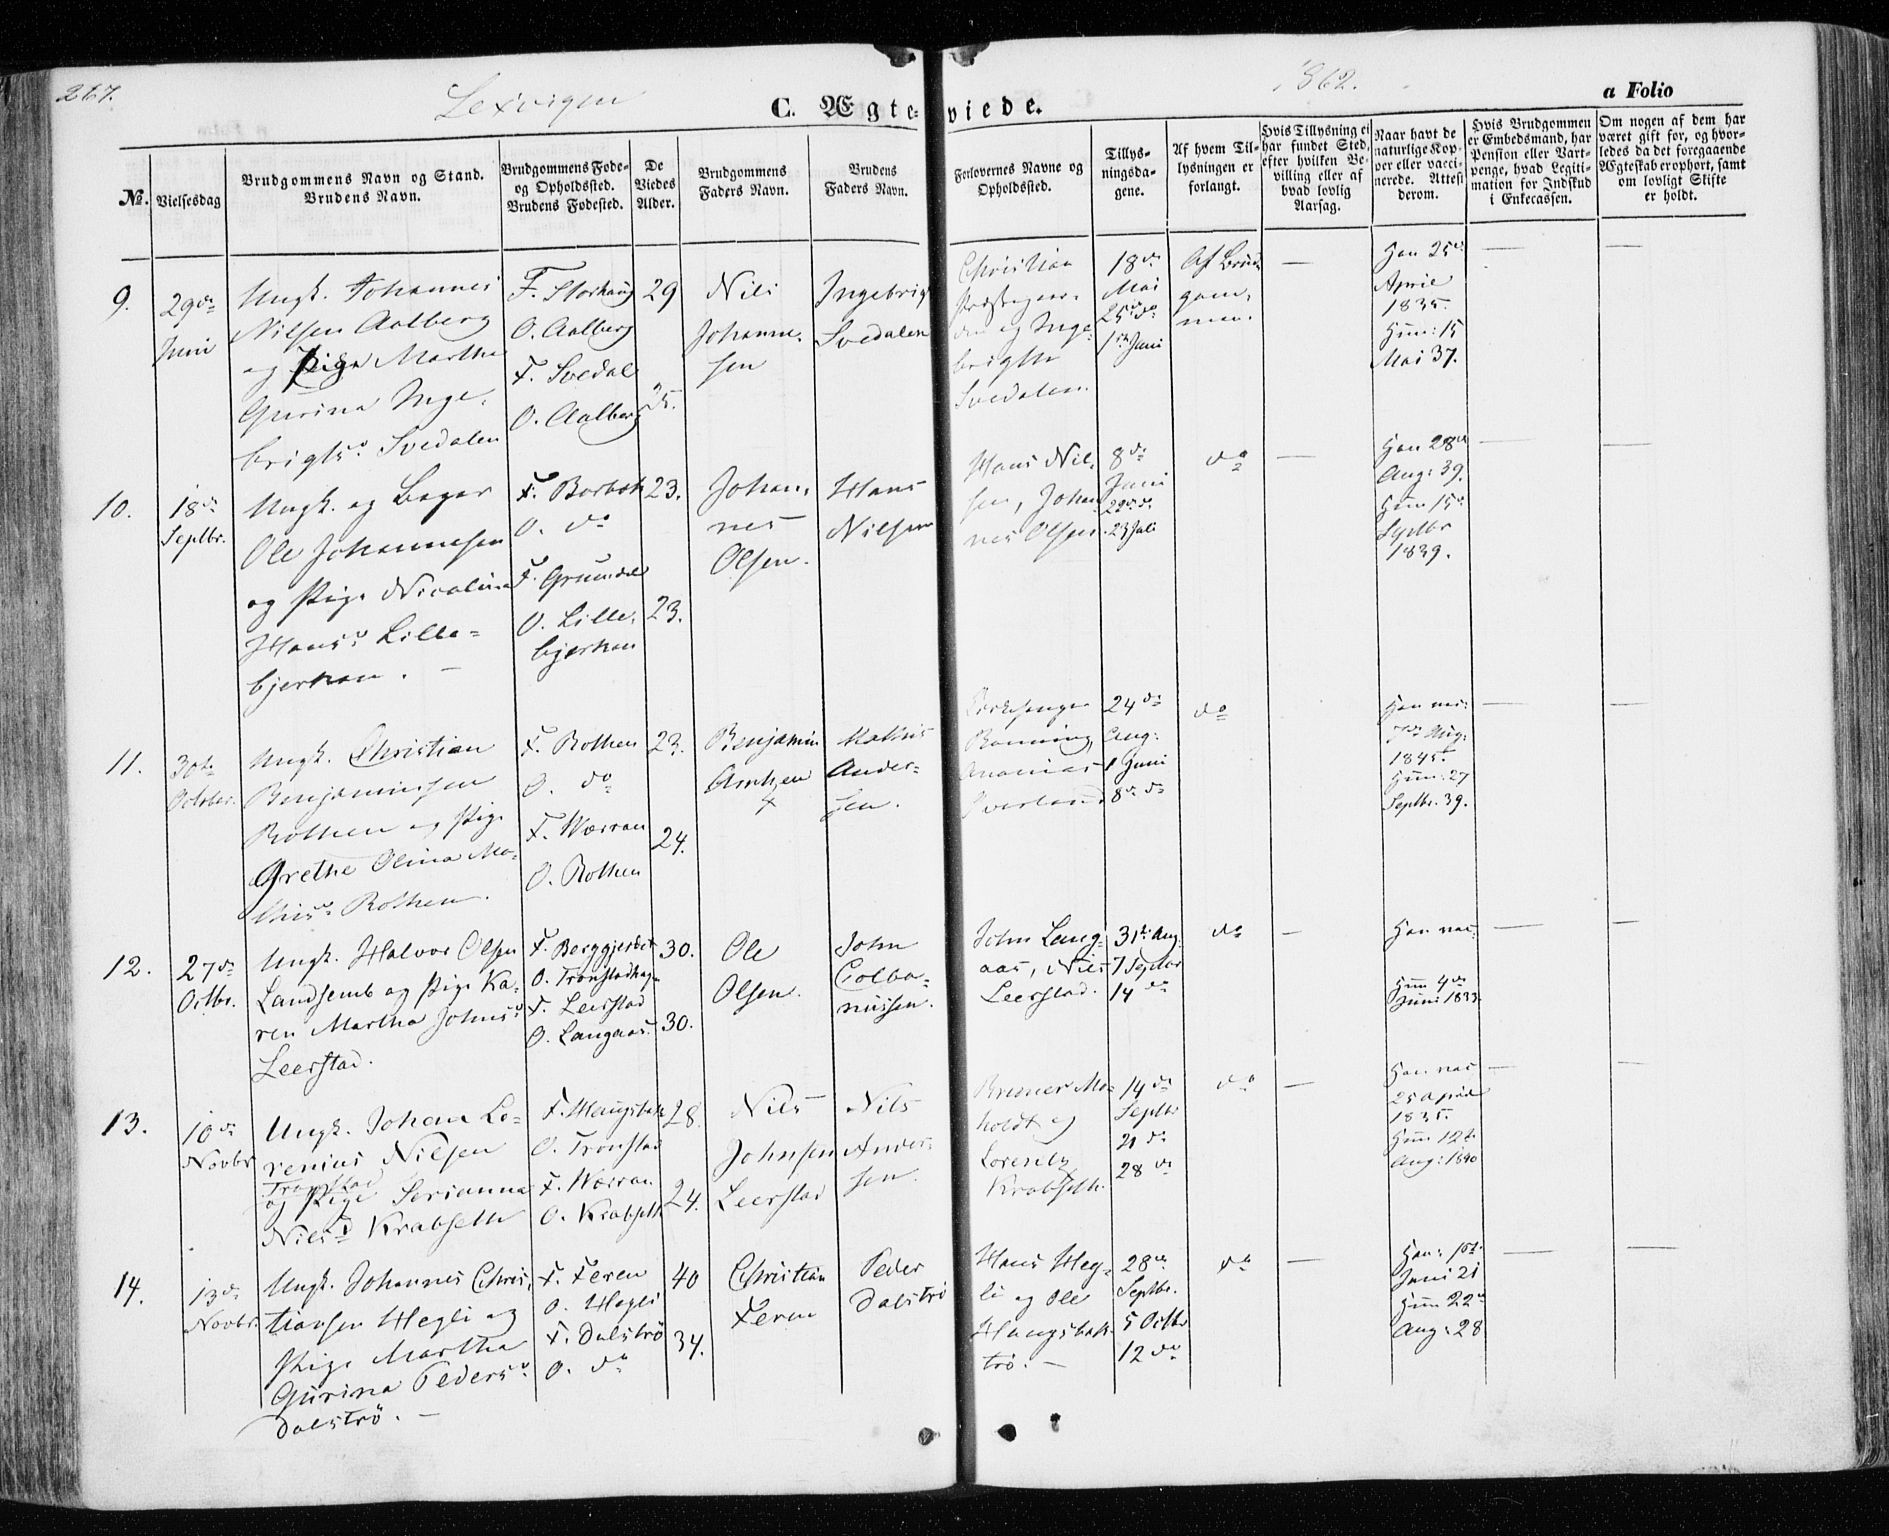 267.
Lexvigen
1862.
C. Ægte-viede.
a Folio
No.
Vielsesdag
Brudgommens Navn og Stand.
Brudens Navn.
Brudgommens Føde-
og Opholdssted.
Brudens Fødested.
De
Viedes
Alder.
Brudgommens
Faders Navn.
Brudens
Faders Navn.
Forlovernes Navne og
Opholdssted.
Tillys-
ningsda-
gene.
Af hvem Til-
lysningen er
forlangt.
Hvis Tillysning ei
har fundet Sted,
efter hvilken Be-
villing eller af
hvad lovlig
Aarsag.
Naar havt de
naturlige Kop-
per eller vacci-
nerede. Attest
derom.
Hvis Brudgommen
er Embedsmand, har
Pension eller Vart-
penge, hvad Legiti-
mation for Indskud
i Enkecassen.
Om nogen af dem har
været gift før, og hvor-
ledes da det foregaaende
Ægteskab er ophørt, samt
om lovligt Skifte
er holdt.
9.
29de
Juni
Ungk. Johannes
Nilsen Aalberg
og Pige Martha
Gurina Inge-
brigtsd. Svedalen
F. Storhaug
O. Aalberg
F. Svedal
O. Aalberg
29
25.
Nils
Johanne-
sen
Ingebrigt
Svedalen
Christian
den og Inge-
brigth
Svedalen.
18de
Mai
25de do
1ste Juni
Af Brud-
gom-
men.
—
Han 25de
April
1835.
Hun: 15
Mai 37.
—
—
10.
18de
Septbr.
Ungk. og Bager
Ole Johannesen
og Pige Nicolina
Hansd. Lille-
bjerkan. —
F. Borbok
O. do
F. Grandal
O. Lille-
bjerkan
23.
23.
Johan-
nes
Olsen.
Hans
Nilsen
Hans Nil-
sen, Johan-
nes Olsen.
8de
Juni
22de do
23 Juli
do
—
Han 28de
Aug: 39.
Hun 15de
Septbr
1839.
—
—
11.
30te
October.
Ungk. Christian
Benjaminsen
Rothen og Pige
Grethe Olina Ma-
thisd. Rothen.
F. Rothen
O. do
F. Værran
O. Rothen
23.
24.
Benjamin
Arntzen
Mathis
Ander-
sen.
Kirkesanger
Ronning,
Ananias
Overland
24de
Aug:
1 Juni
8de do
do
Han vac:
7de Aug:
1845.
Hun: 27
Septbr. 39.
—
—
12.
27de
Octbr.
Ungk. Halvor Olsen
Landsemb og Pige Ka-
ren Martha Johnsd.
Leerstad.
F. Berggjerdet
O. Trønstadhagen
F. Leerstad
O. Langaas.
30.
30.
Ole
Olsen.
John
Colba-
nussen.
John Lang-
aas, Nils
Leerstad.
31te Aug.
7 Septbr
14 do
do
—
Han vac:
Hun 4de
Juni 1833.
—
—
13.
10de
Novbr
Ungk. Johan Lo-
renius Nilsen
Trønstad
og Pige Serianna
Nilsd. Krabseth
F. Haugsbak
O. Trønstad
F. Værran
O. Krabseth
28.
24.
Nils
Johnsen
Leerstad
Nils
Ander-
sen.
Bremer Mo-
holdt og
Lorentz
Krabseth.
14de
Septbr
21 do
28 do
do
—
Han vac
25 April
1835.
Hun 12te
Aug: 1840
—
—
14.
13de
Novbr.
Ungk. Johannes Chris-
tiansen Hegli og
Pige Martha
Gurina Pedersd.
Dalstrø. —
F. Feren
O. Hegli
F. Dalstrø
O. do
40
34.
Christian
Feren
Peder
Dalstrø
Hans Heg-
li og Ole
Haugsbak-
trø. —
28de
Septbr.
5 Octbr
12 do
do
—
Han: 10de
Juni 21
Hun 22de
Aug: 28
—
—